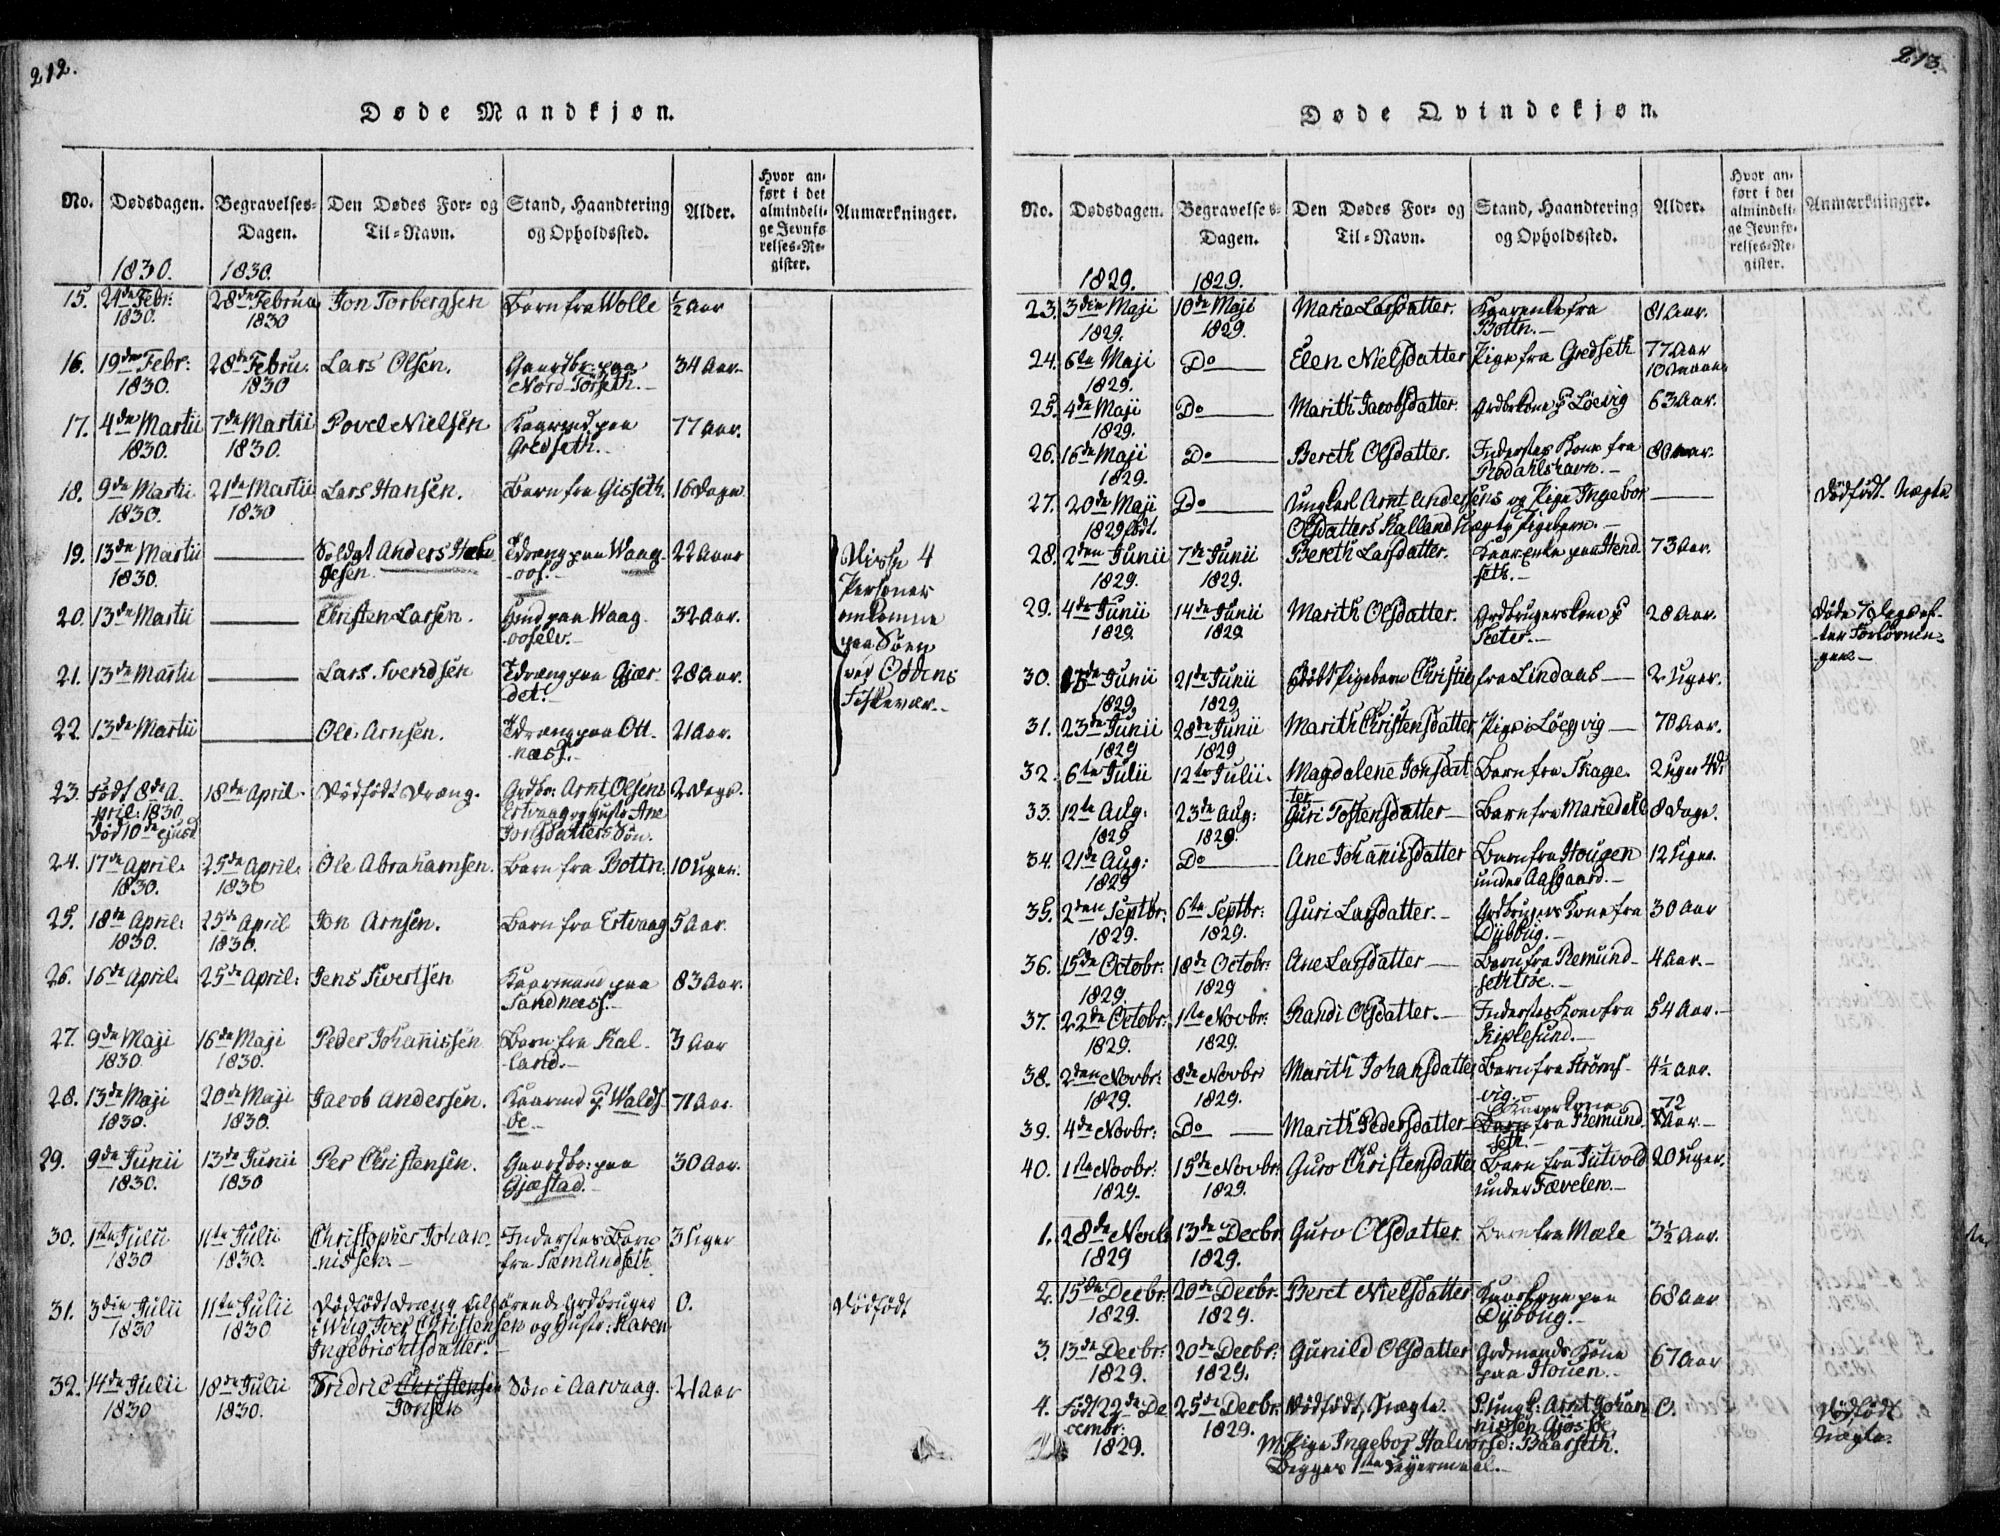 212.
Døde Mandkjøn.
No. Dødsdagen. Begravelses-Dagen. Den Dødes For- og Til-Navn. Stand, Haandtering og Opholdssted. Alder. Hvor anført i det almindelige Jevnførelses-Register. Anmærkninger.
1830. 1830.
15. 21de Febr: 28de Februa Jon Torbergsen Barn fra Wolle ½ Aar
1830. 1830
16. 19de Febr: 28de Febru. Lars Olsen. Gaardbr: paa 34 Aar.
1830. 1830 Nord-Torseth.
17. 4de Martii 7de Martii Povel Nielsen Kaarmd paa 77 Aar.
1830. 1830. Gredseth.
18. 9de Martii 21de Martii Lars Hansen. Barn fra Gisseth. 16 Dage
1830. 1830
19. 13de Martii Soldat Anders Hake Tdræng paa Waag- 22 Aar Disse 4
1830. gesen. oos. Personer
20. 13de Martii Christen Larsen. Hmd paa Waag- 32 Aar. omkomne
ooselv. paa Søen
21. 13de Martii Lars Svendsen Tdræng paa Gjær- 28 Aar. ved Oddens
det. Fiskevær.
22. 13de Martii Ole Arnsen. Tdræng paa Ott- 21 Aar.
næss.
23. Født 8de A. 18de April. Dødfødt Dræng. Grdbr: Arnt Olsens 2 Dage.
pril. 1830. Ertvaag og Hustr Ane
død 10de ejusd Jonsdatters Søn.
24. 17de April. 25de April. Ole Abrahamsen. Barn fra Bottn. 10 Uger.
1830. 1830
25. 18de April: 25de April Jon Arnsen. Barn fra Ertvaag 5 Aar.
1830. 1830.
26. 16de April. 25de April: Jens Sivertsen Kaarmand paa 83 Aar.
Sandnæss.
27. 9de Maji 16de Maji Peder Johannissen Barn fra Kal- 3 Aar
1830 1830. land.
28. 13de Maji 20de Maji Jacob Andersen. Kaarmd p Walds 71 Aar.
1830. 1830. øe.
29. 9de Junii 13de Junii Per Christensen. Gaardbr: paa 30 Aar.
1830. 1830 Gjæstad.
30. 1ste Julii 11te Julii Christopher Johan- Inderstes Barn 3 Uger
1830 1830. nissen. fra Sæmundseth
31. 3die Julii 11te Julii Dødfødt Dræng tilhørende Grdbruger 0. Dødfødt
1830 1830 i Wiig Iver Christensen og Hustr: Karen
Ingebrigtsdatter.
32. 14de Julii 18de Julii Fridric Christensen Søn i Aarvaag. 21 Aar
1830 1830. Jonsen
213.
Døde Qvindekjøn.
No. Dødsdagen. Begravelses-Dagen. Den Dødes For- og Til-Navn. Stand, Haandtering og Opholdssted. Alder. Hvor anført i det almindelige Jevnførelses-Register. Anmærkninger.
1829. 1829.
23. 3die Maji 10de Maji Maria Larsdatter. Kaarenke fra 81 Aar.
1829. 1829. Bottn.
24. 6te Maji Do Elen Nielsdatter Pige fra Gredseth 77 Aar
1829. 10 Maaned
25. 4de Maji Do Marith Jacobsdatter. Grdbrkone p Løevig 63 Aar.
1829.
26. 16de Maji Do Bereth Olsdatter. Inderstes Kone fra 80 Aar.
1829. Rødahlshavn.
27. 20de Maji Do Ungkarl Arnt Andersens og Pige Ingebor Dødfødt. Uægte
1829 født. Olsdatters Kalland Uægte Pigebarn.
28. 2den Junii 7de Junii Bereth Larsdatter. Kaarenke paa Hend 73 Aar.
1829. 1829. seth.
29. 4de Junii 14de Junii Marith Olsdatter. Grdbrugerskone p 28 Aar. Døde 7 Dage ef-
1829. 1829 Sæter. ter Forløsnin-
gen.
30. 15de Junii 21de Junii Født Pigebarn Christie fra Lindaas 2 Uger.
1829 1829
31. 23de Junii 28de Junii Marith Christensdatter Pige i Løegvig 70 Aar.
1829 1829
32. 6te Julii 12te Julii. Magdalene Jonsdat Barn fra Skage. 2 Uger 4 D.
ter
33. 12te Aug: 23de Aug: Guri Tostensdatter Barn fra Mariedahl 8 Dage.
1829 1829.
34. 21de Aug: Do Ane Johannisdatter Barn fra Hougen 12 Uger.
1829 under Aasgaard.
35. 2den Septbr: 6te Septbr: Guri Larsdatter. Grdbrugers Kone fra 30 Aar
1829. 1829. Dybbug.
36. 15de Octobr: 18de Octobr: Ane Larsdatter Barn fra Remund- 4 Aar.
1829. 1829 sethtrøe.
37. 22de Octobr: 1ste Novbr: Randi Olsdatter. Inderstes Kone fra 54 Aar.
1829. 1829. Kiplesund.
38. 2den Novbr: 8de Novbr Marith Johansdatter Barn fra Strøms- 4½ Aar.
1829. 1829. vig.
Kaarkone 72
39. 4de Novbr: Do Marith Pedersdatter Barn fra Remund Aar
seth.
40. 1ste Novbr: 15de Novbr: Guro Christensdatter Barn fra Jutvold 20 Uger.
1829. 1829. under Fævelen.
1. 28de Novb 13de Decbr: Guro Olsdatter Barn fra Mæle 3½ Aar.
1829 1829.
2. 15de Decbr: 20de Decbr: Beret Nielsdatter Kaarkone paa 68 Aar
1829. 1829. Dybbug.
3. 13de Decbr: 20de Decbr: Gunild Olsdatter Grdmands Kone 67 Aar
1829. 1829. paa Houen.
4. Født 22de De 25de Decbr: Dødfødt, Uægte. P: Ungk: Arnt Johan 0. Dødfødt
cembr: 1829. nissen Gjøssøe, Uægte.
1829. M: Pige Ingebor Halvorsd: Baarseth.
Begges 1ste Lejermaal.